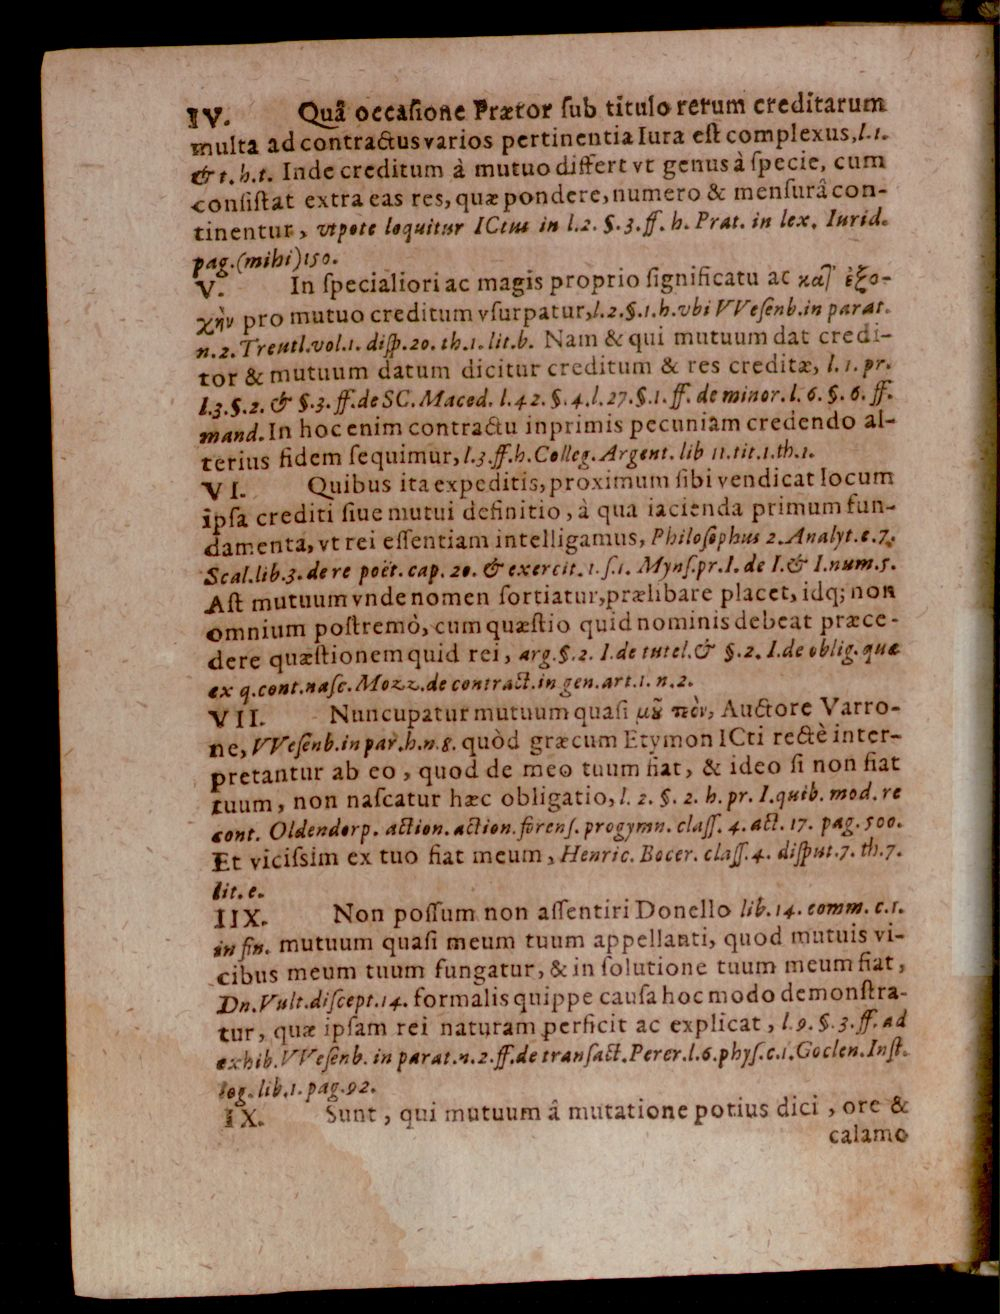 IV. Quâ occasione Prætor sub titulo rerum creditarum
multa ad contractus varios pertinentia Iura est complexus, l.1.
& t. h.t. Inde creditum à mutuo differt vt genus à specie, cum
consistat extra eas res, quæ pondere, numero & mensurâ con-
tinentur, vtpote loquitur ICtus in l.2. §.3. ff. h. Prat. in lex. Iurid.
pag.(mihi)150.
V. In specialiori ac magis proprio significatu ac κατ' ἐξο-
χὴν pro mutuo creditum vsurpatur, l.2.§.1.h.vbi VVesenb.in parat.
n.2. Treutl.vol.1. disp.20. th.1. lit.b. Nam & qui mutuum dat credi-
tor & mutuum datum dicitur creditum & res creditæ, l.1. pr.
l.3.§.2. & §.3. ff.de SC. Maced. l.42. §.4.l.27.§.1. ff. de minor. l.6.§.6. ff.
mand. In hoc enim contractu inprimis pecuniam credendo al-
terius fidem sequimur, l.3.ff.h.Colleg.Argent. lib 11.tit.1.th.1.
VI. Quibus ita expeditis, proximum sibi vendicat locum
ipsa crediti siue mutui definitio, à qua iacienda primum fun-
damenta, vt rei essentiam intelligamus, Philosophus 2.Analyt.c.7.
Scal.lib.3.de re poët.cap.20. & exercit.1.s.1. Myns.pr.I. de I.& I.num.5.
Ast mutuum vnde nomen sortiatur, prælibare placet, idq; non
omnium postremò, cum quæstio quid nominis debeat præce-
dere quæstionem quid rei, arg.§.2. I.de tutel.& §.2. I.de oblig.quæ
ex q.cont.nasc.Mozz.de contract.in gen.art.1. n.2.
VII. Nuncupatur mutuum quasi μȣ̃ τεὸν, Auctore Varro-
ne, VVesenb.in par.h.n.8. quòd græcum Etymon ICti rectè inter-
pretantur ab eo, quod de meo tuum fiat, & ideo si non fiat
tuum, non nascatur hæc obligatio, l. 2. §. 2. h. pr. I.quib. mod. re
cont. Oldendorp. action. action. forens. progymn. class. 4. act. 17. pag. 500.
Et vicissim ex tuo fiat meum, Henric. Bocer. class.4. disput.7. th.7.
lit. e.
IIX. Non possum non assentiri Donello lib.14. comm. c.1.
in fin. mutuum quasi meum tuum appellanti, quod mutuis vi-
cibus meum tuum fungatur, & in solutione tuum meum fiat,
Dn.Vult.discept.14. formalis quippe causa hoc modo demonstra-
tur, quæ ipsam rei naturam perficit ac explicat, l.9. §.3. ff. ad
exhib.VVesenb. in parat.n.2.ff.de transact.Perer.l.6.phys.c.1.Goclen.Inst.
log.lib.1.pag.92.
IX. Sunt, qui mutuum â mutatione potius dici, ore &
calamo